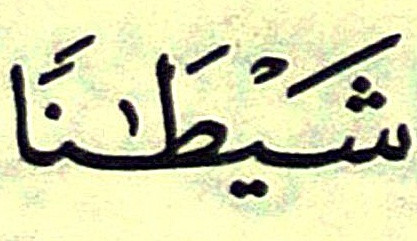 شَيْطَٰنًا